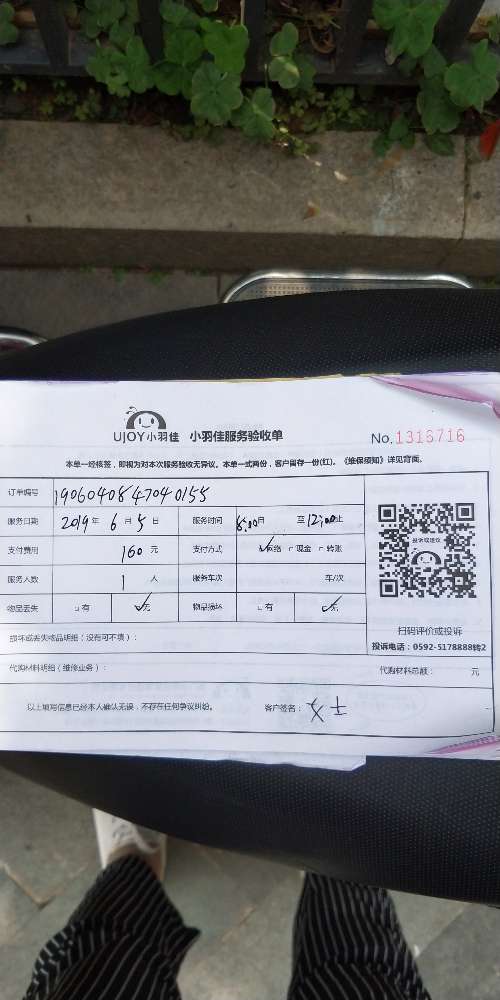 UJOY小羽佳 小羽佳服务验收单 No.1316716
本单一经核签，即视为对本次服务验收无异议。本单一式两份，客户留存一份(红)。《维保须知》详见背面。
订单编号 1906040847040155
服务日期 2019年 6月 5日 服务时间 8:00自 至 12:00止
支付费用 160元 支付方式 ☑网络 □现金 □转账
服务人数 1人 服务车次 车/次
物品丢失 □有 ☑无 物品损坏 □有 ☑无
投诉或建议
扫码评价或投诉
投诉电话：0592-5178888转2
损坏或丢失物品明细（没有可不填）：
代购材料明细（维修业务）： 代购材料总额： 元
以上填写信息已经本人确认无误，不存在任何争议纠纷。 客户签名：